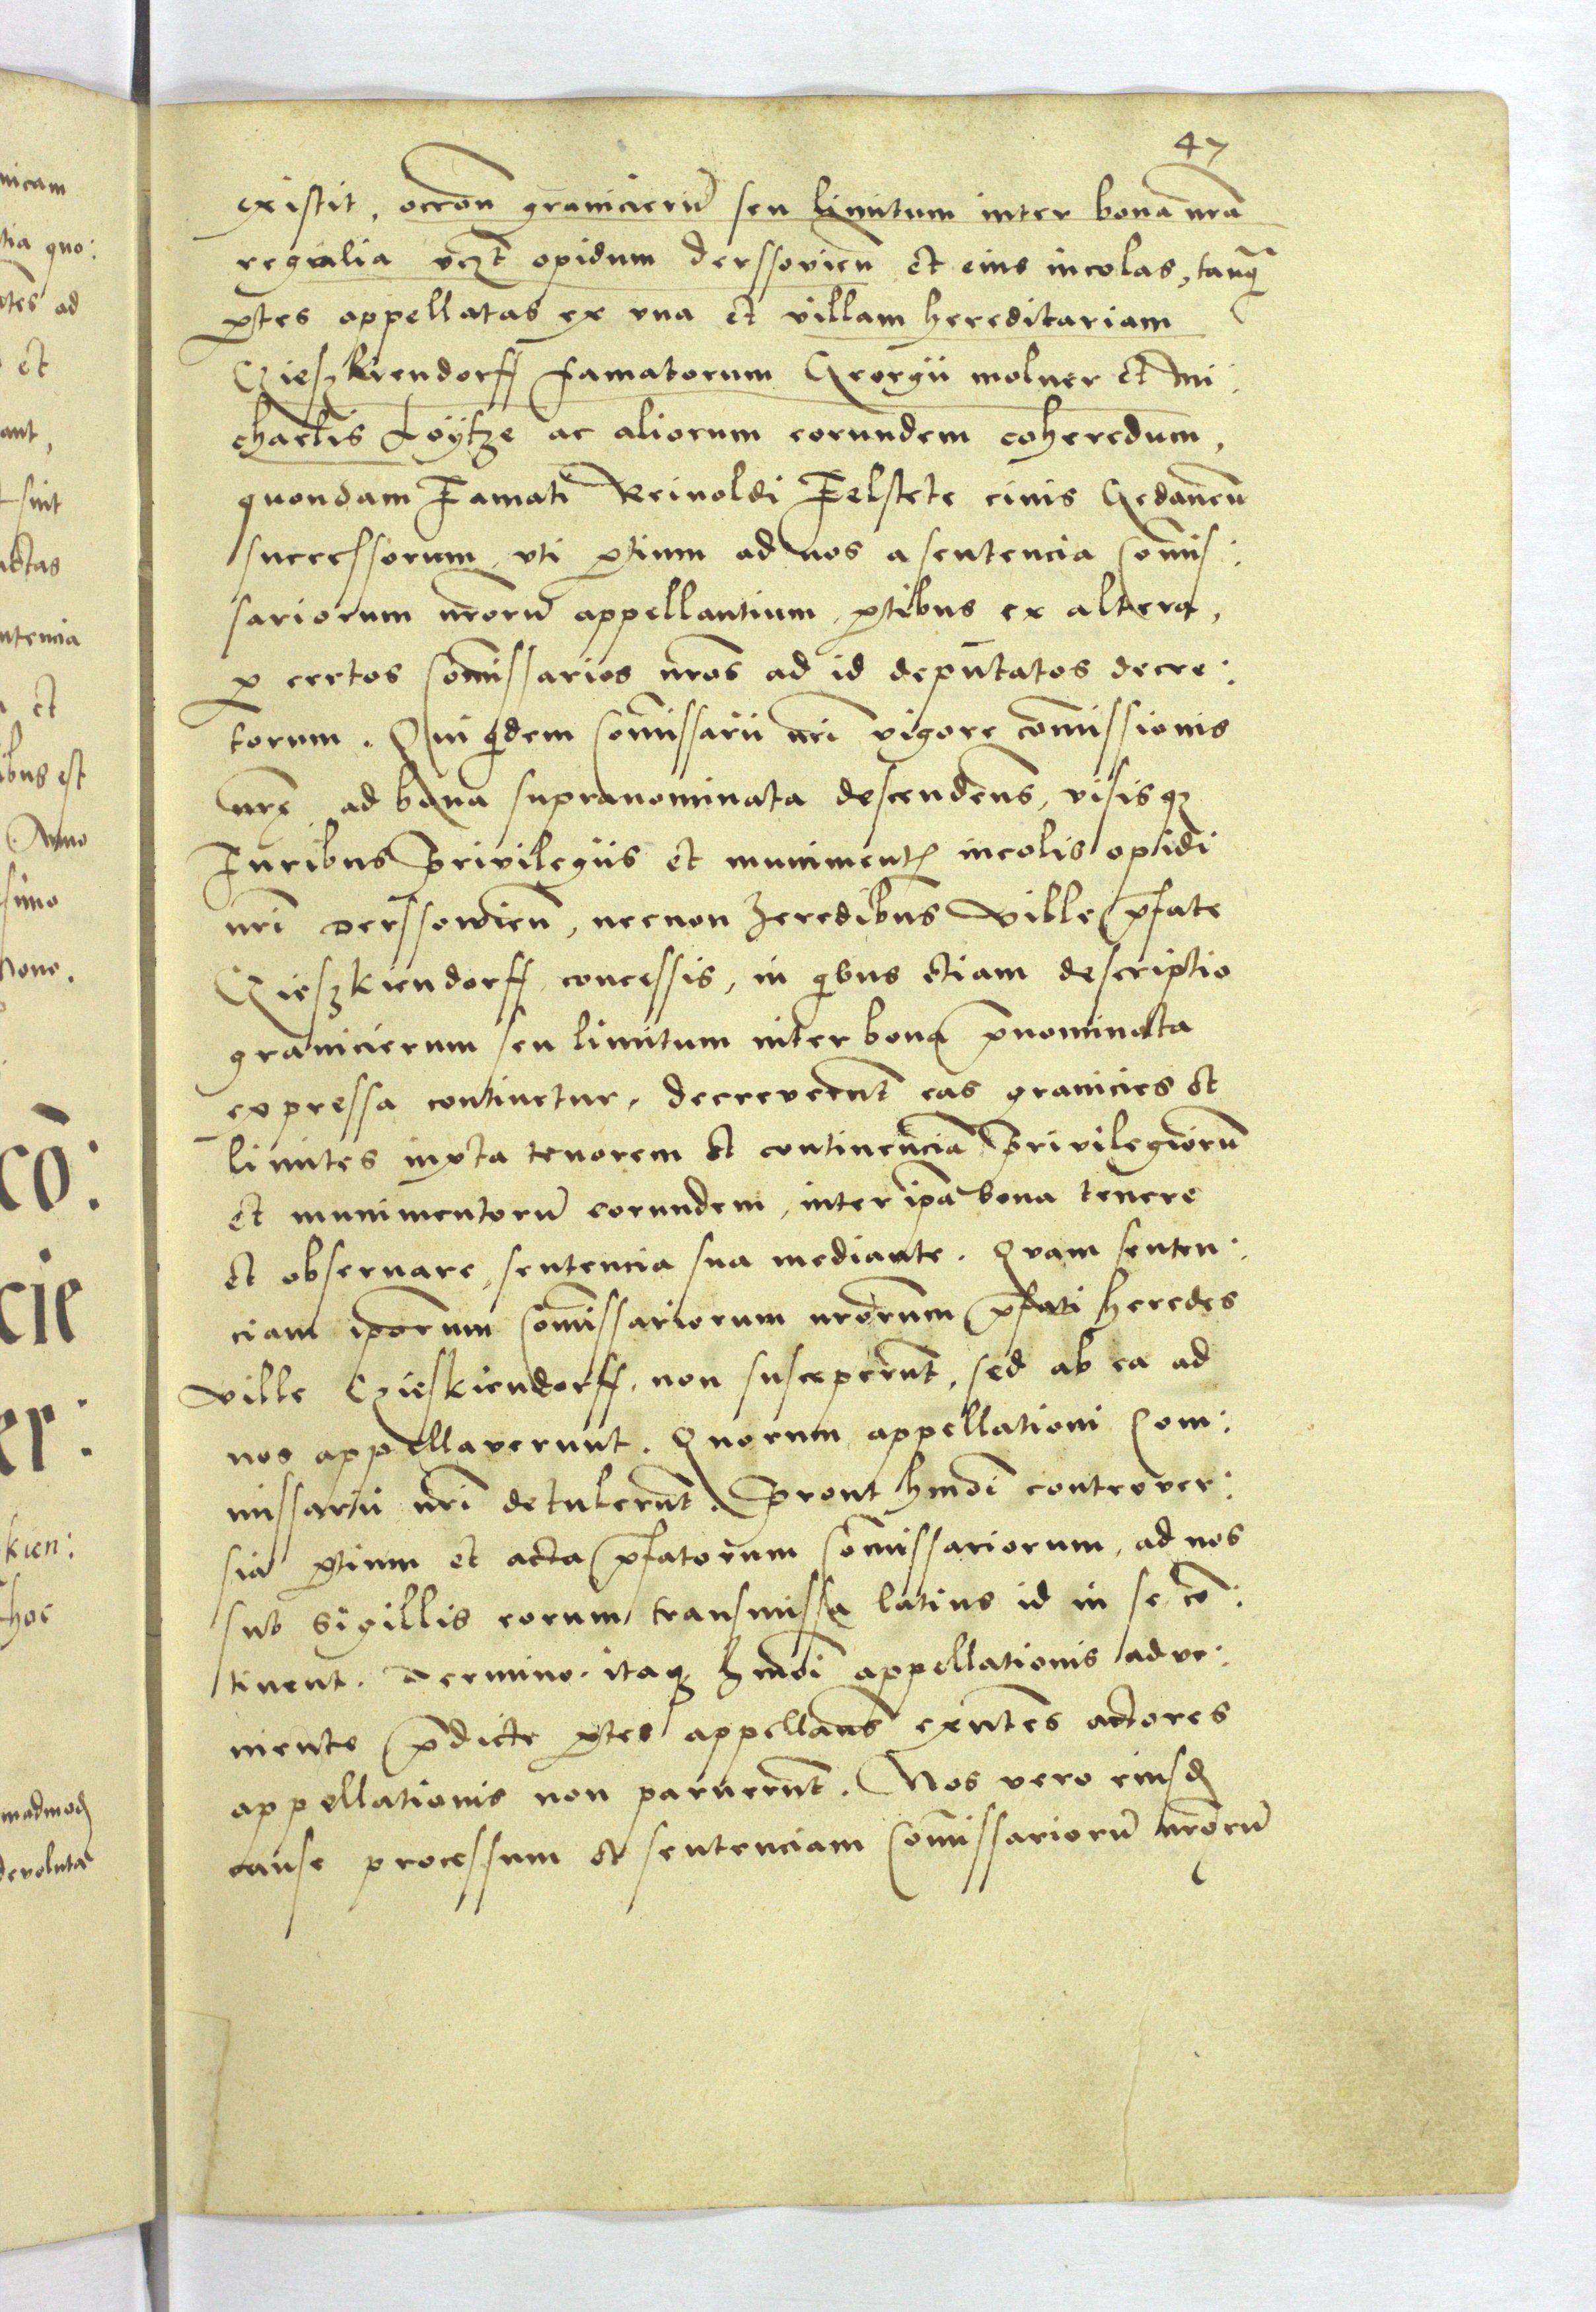 47
existit, occōn̄ granicierū seu limitum inter bona nrā
regialia vcꝫt opidum derssovien̄ et eius incolas, tanq̄
ꝑtes appellatas ex vna et villam hereditariam
Czieszkiendorff famatorum Georgii molner et Mi:
chaelis Loÿtze ac aliorum eorundem coheredum,
quondam Famati Reinoldi Felstete civis Gedanen̄
successorum, vti ꝑtium ad nos a sentencia Com̄is:
sariorum nr̄orū appellantium, ꝑtibus ex altera,
ꝑ certos Com̄issarios nr̄os ad id deputatos decre:
torum. Qui qͥdem Com̄issarii nr̄i vigore com̄issionis
nr̄ę ad bona supranominata descenden̄s, visisqꝫ
Iuribus Privilegiis et munimentꝭ incolis opidi
nr̄i Derssowien̄, necnon heredibus Ville p̄fate
Czieszkiendorff, concessis, in qͥbus etiam descriptio
granicierum seu limitum inter bona p̄nominata
expressa continetur, decreverūt eas granicies et
limites iuxta tenorem et continenciā Privilegiorū
et munimentorū eorundem, inter ip̄a bona tenere
et observare, sentencia sua mediante. Quam senten:
ciam ip̄orum Com̄issariorum nr̄orum p̄fati heredes
Ville Czieskiendorff, non susceperūt, sed ab ea ad
nos appellaverunt. Quorum appellationi Com:
missarii nr̄i detulerūt. Prout hm̄oi controver:
sia ꝑtium et acta p̄fatorum Com̄issariorum, ad nos
sub sigillis eorum transmissa latius id in se cō:
tinent. Termino itaqꝫ hm̄oi appellationis adve:
niente p̄dicte ꝑtes appellan̄s existn̄tes actores
appellationis non paruerūt. Nos vero eiusdꝫ
cause processum et sentenciam Com̄issariorū nr̄orū